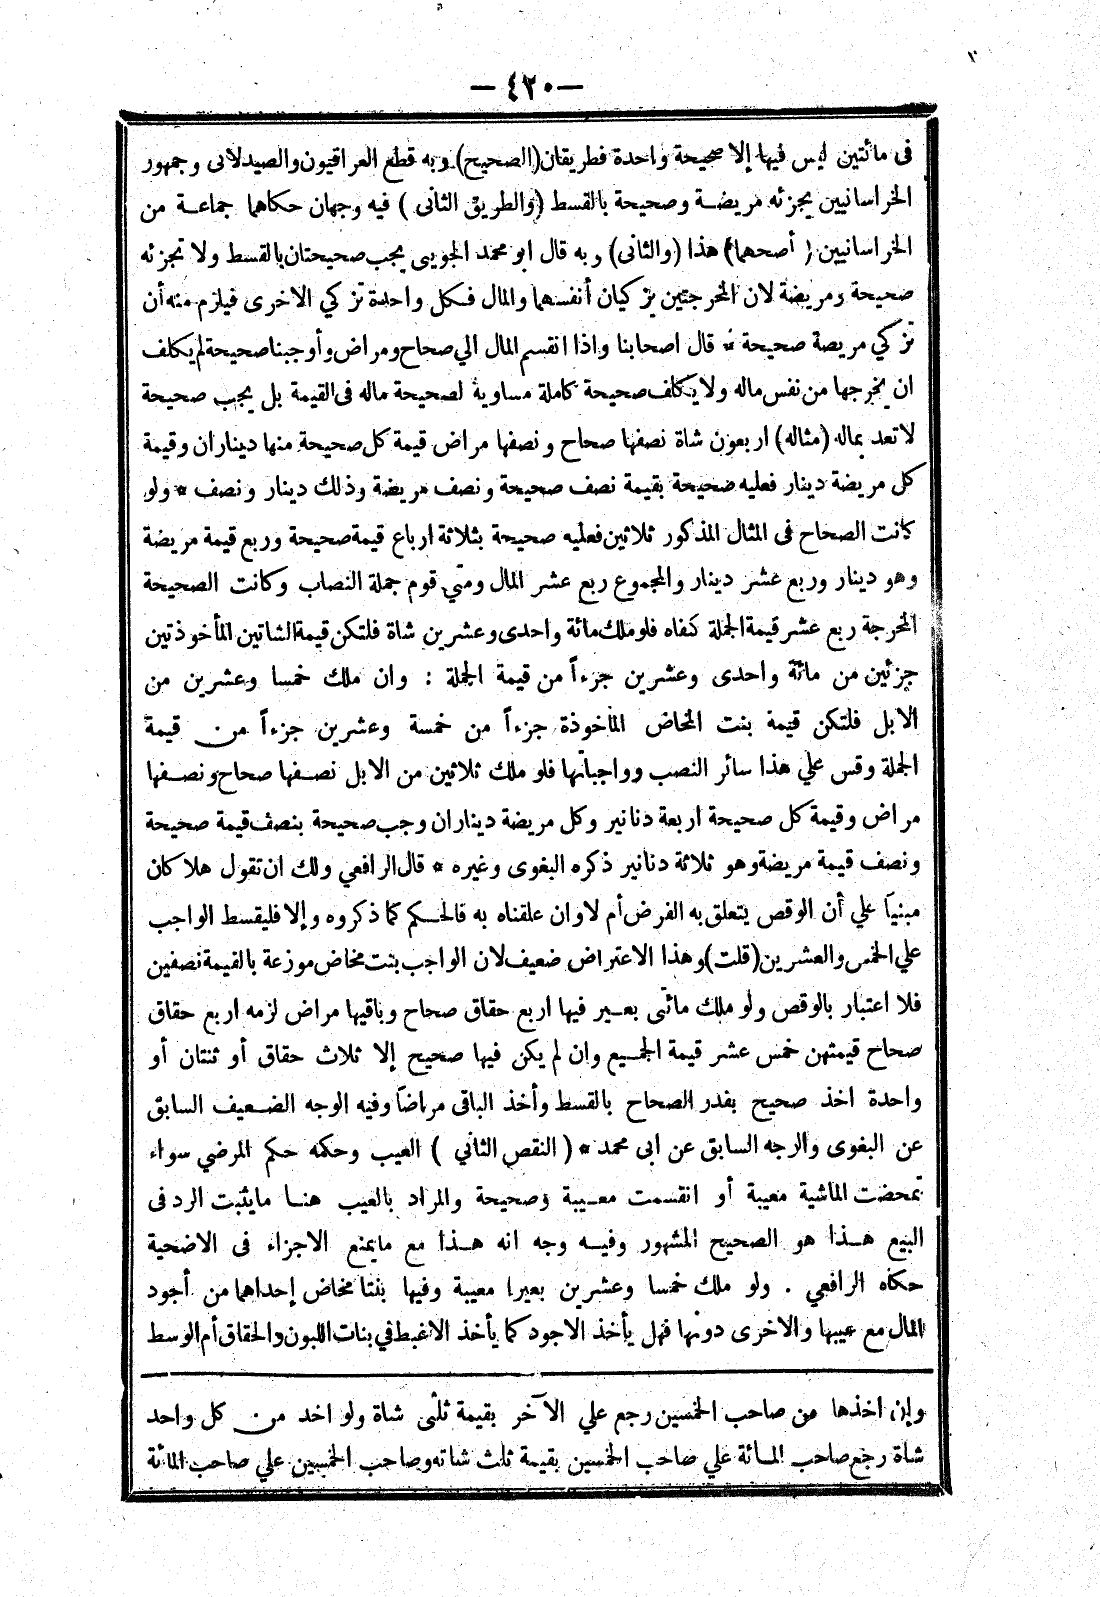 — ٤٢٠ —
فى مائتين ليس فيها إلا صحيحة واحدة فطريقان (الصحيح) وبه قطع العراقيون والصيدلانى وجمهور
الخراسانيين يجزئه مريضة وصحيحة بالقسط (والطريق الثانى) فيه وجهان حكاهما جماعة من
الخراسانيين (أصحهما) هذا (والثانى) وبه قال ابو محمد الجوينى يجب صحيحتان بالقسط ولا تجزئه
صحيحة ومريضة لان المخرجتين يزكيان أنفسهما والمال فكل واحدة تزكي الاخرى فيلزم منه أن
تزكي مريضة صحيحة * قال اصحابنا واذا انقسم المال الي صحاح ومراض وأوجبنا صحيحة لم يكلف
ان يخرجها من نفس ماله ولا يكلف صحيحة كاملة مساوية لصحيحة ماله فى القيمة بل يجب صحيحة
لا تعد بماله (مثاله) اربعون شاة نصفها صحاح ونصفها مراض قيمة كل صحيحة منها ديناران وقيمة
كل مريضة دينار فعليه صحيحة بقيمة نصف صحيحة ونصف مريضة وذلك دينار ونصف * ولو
كانت الصحاح فى المثال المذكور ثلاثين فعليه صحيحة بثلاثة ارباع قيمة صحيحة وربع قيمة مريضة
وهو دينار وربع عشر دينار والمجموع ربع عشر المال ومتي قوم جملة النصاب وكانت الصحيحة
المخرجة ربع عشر قيمة الجملة كفاه فلو ملك مائة واحدى وعشرين شاة فلتكن قيمة الشاتين المأخوذتين
جزئين من مائة واحدى وعشرين جزءاً من قيمة الجملة : وان ملك خمسا وعشرين من
الابل فلتكن قيمة بنت المخاض المأخوذة جزءاً من خمسة وعشرين جزءاً من قيمة
الجملة وقس علي هذا سائر النصب وواجباتها فلو ملك ثلاثين من الابل نصفها صحاح ونصفها
مراض وقيمة كل صحيحة اربعة دنانير وكل مريضة ديناران وجب صحيحة بنصف قيمة صحيحة
ونصف قيمة مريضة وهو ثلاثة دنانير ذكره البغوى وغيره * قال الرافعي ولك ان تقول هلا كان
مبنياً علي أن الوقص يتعلق به الفرض أم لا وان علقناه به فالحكم كما ذكروه وإلا فليقسط الواجب
علي الخمس والعشرين (قلت) وهذا الاعتراض ضعيف لان الواجب بنت مخاض موزعة بالقيمة نصفين
فلا اعتبار بالوقص ولو ملك مائتى بعير فيها اربع حقاق صحاح وباقيها مراض لزمه اربع حقاق
صحاح قيمتهن خمس عشر قيمة الجميع وان لم يكن فيها صحيح إلا ثلاث حقاق أو ثنتان أو
واحدة اخذ صحيح بقدر الصحاح بالقسط وأخذ الباقى مراضاً وفيه الوجه الضعيف السابق
عن البغوى والوجه السابق عن ابى محمد * ( النقص الثاني ) العيب وحكمه حكم المرضي سواء
تمحضت الماشية معيبة أو انقسمت معيبة وصحيحة والمراد بالعيب هنا مايثبت الرد فى
البيع هذا هو الصحيح المشهور وفيه وجه انه هذا مع مايمنع الاجزاء فى الاضحية
حكاه الرافعي . ولو ملك خمسا وعشرين بعيرا معيبة وفيها بنتا مخاض إحداهما من أجود
المال مع عيبها والاخرى دونها فهل يأخذ الاجود كما يأخذ الاغبط في بنات اللبون والحقاق أم الوسط
وإن اخذها من صاحب الخمسين رجع علي الآخر بقيمة ثلثى شاة ولو اخد من كل واحد
شاة رجع صاحب المائة علي صاحب الخمسين بقيمة ثلث شاته وصاحب الخمسين علي صاحب المائة